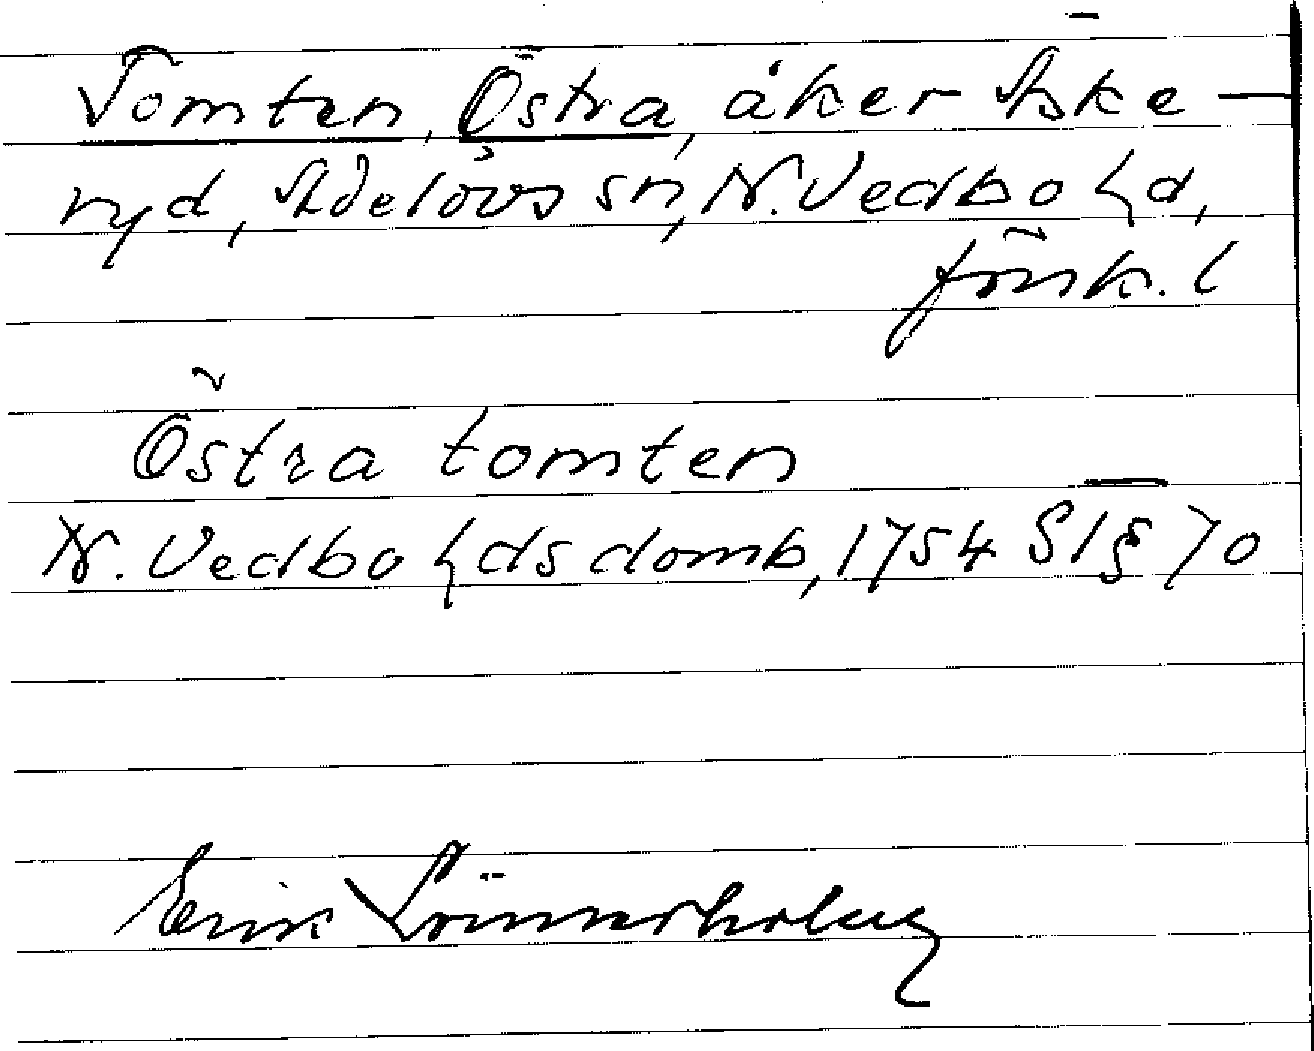 Tomten, Östra, åker Aske-
ryd, Adelövs sn, N. Vedbo hd,
Jönk. l
Östra tomten
N. Vedbo hds domb, 1754 S 1 § 70
Erik Lönnerholm